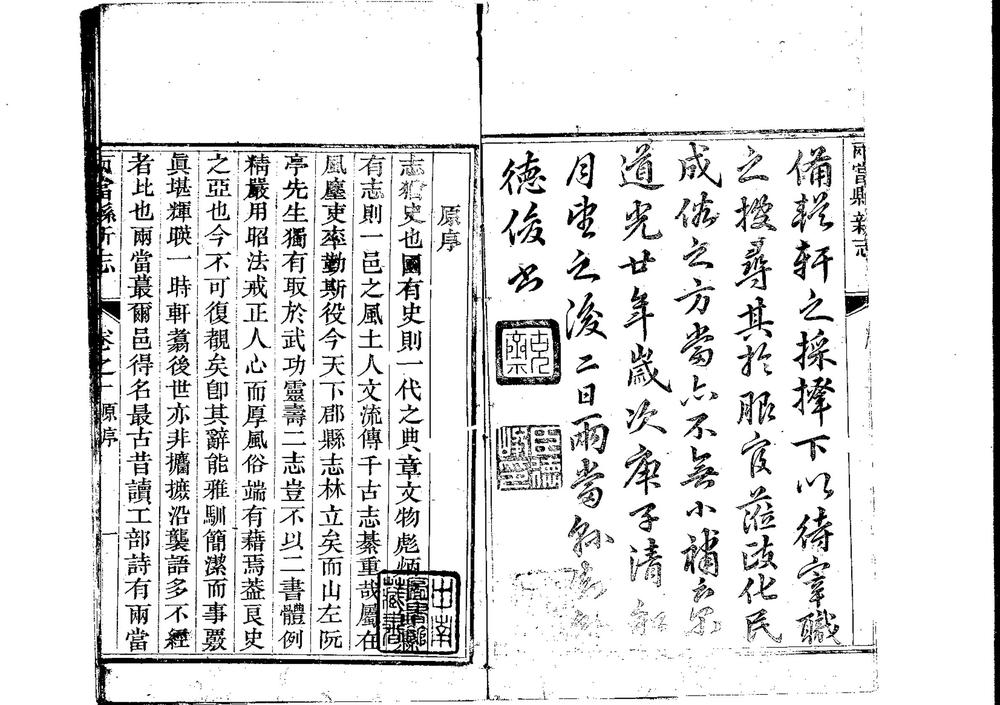 兩當縣新志
備輶軒之採擇下以待宰職
之搜尋其於服官蒞政化民
成俗之方當亦不無小補云爾
道光廿年歲次庚子清和
月望之後二日兩當縣
德俊書
原序
志猶史也國有史則一代之典章文物彪炳
有志則一邑之風土人文流傳千古志綦重哉屬在
風塵吏率勤斯役今天下郡縣志林立矣而山左阮
亭先生獨有取於武功靈壽二志豈不以二書體例
精嚴用昭法戒正人心而厚風俗端有藉焉葢良史
之亞也今不可復覩矣卽其辭能雅馴簡潔而事覈
眞堪輝暎一時軒翥後世亦非攟摭沿襲語多不經
者比也兩當蕞爾邑得名最古昔讀工部詩有兩當
兩當縣新志 卷之一 原序 一